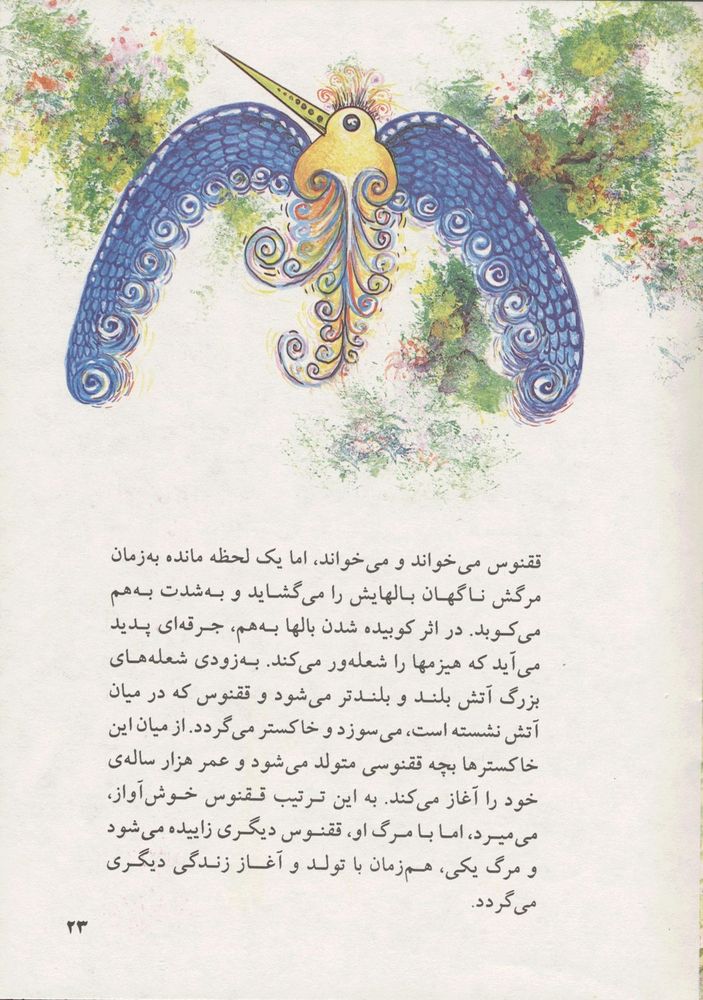 ققنوس می‌خواند و می‌خواند، اما یک لحظه مانده به‌زمان
مرگش ناگهان بالهایش را می‌گشاید و به‌شدت به‌هم
می‌کوبد. در اثر کوبیده شدن بالها به‌هم، جرقه‌ای پدید
می‌آید که هیزمها را شعله‌ور می‌کند. به‌زودی شعله‌های
بزرگ آتش بلند و بلندتر می‌شود و ققنوس که در میان
آتش نشسته است، می‌سوزد و خاکستر می‌گردد. از میان این
خاکسترها بچه ققنوسی متولد می‌شود و عمر هزار ساله‌ی
خود را آغاز می‌کند. به این ترتیب ققنوس خوش‌آواز،
می‌میرد، اما با مرگ او، ققنوس دیگری زاییده می‌شود
و مرگ یکی، هم‌زمان با تولد و آغاز زندگی دیگری
می‌گردد.
۲۳